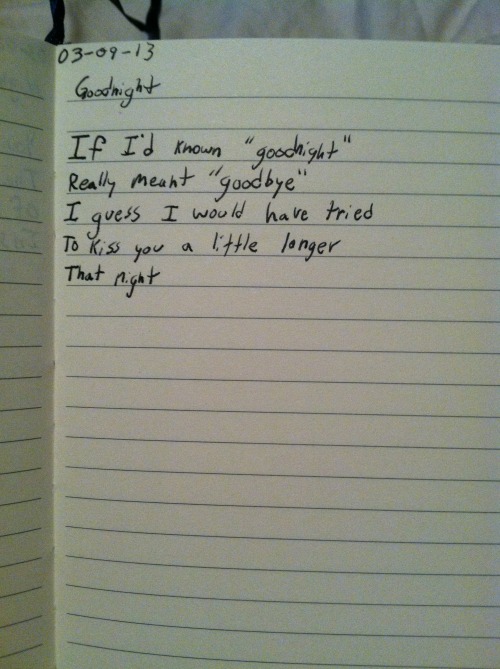 03-09-13
Goodnight
If I'd known "goodnight"
Really meant "goodbye"
I guess I would have tried
To kiss you a little longer
That night